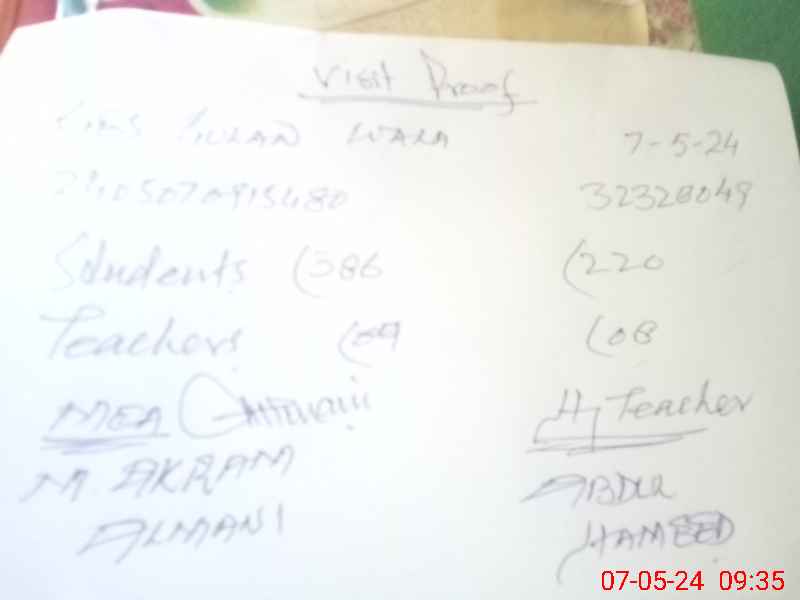 Visit Proof
WALA 7-5-24
32328049
Students (386 (220
Teachers (09 (08
MEA H Teacher
M. AKRAM ABDUL
ALMANI HAMEED
07-05-24 09:35